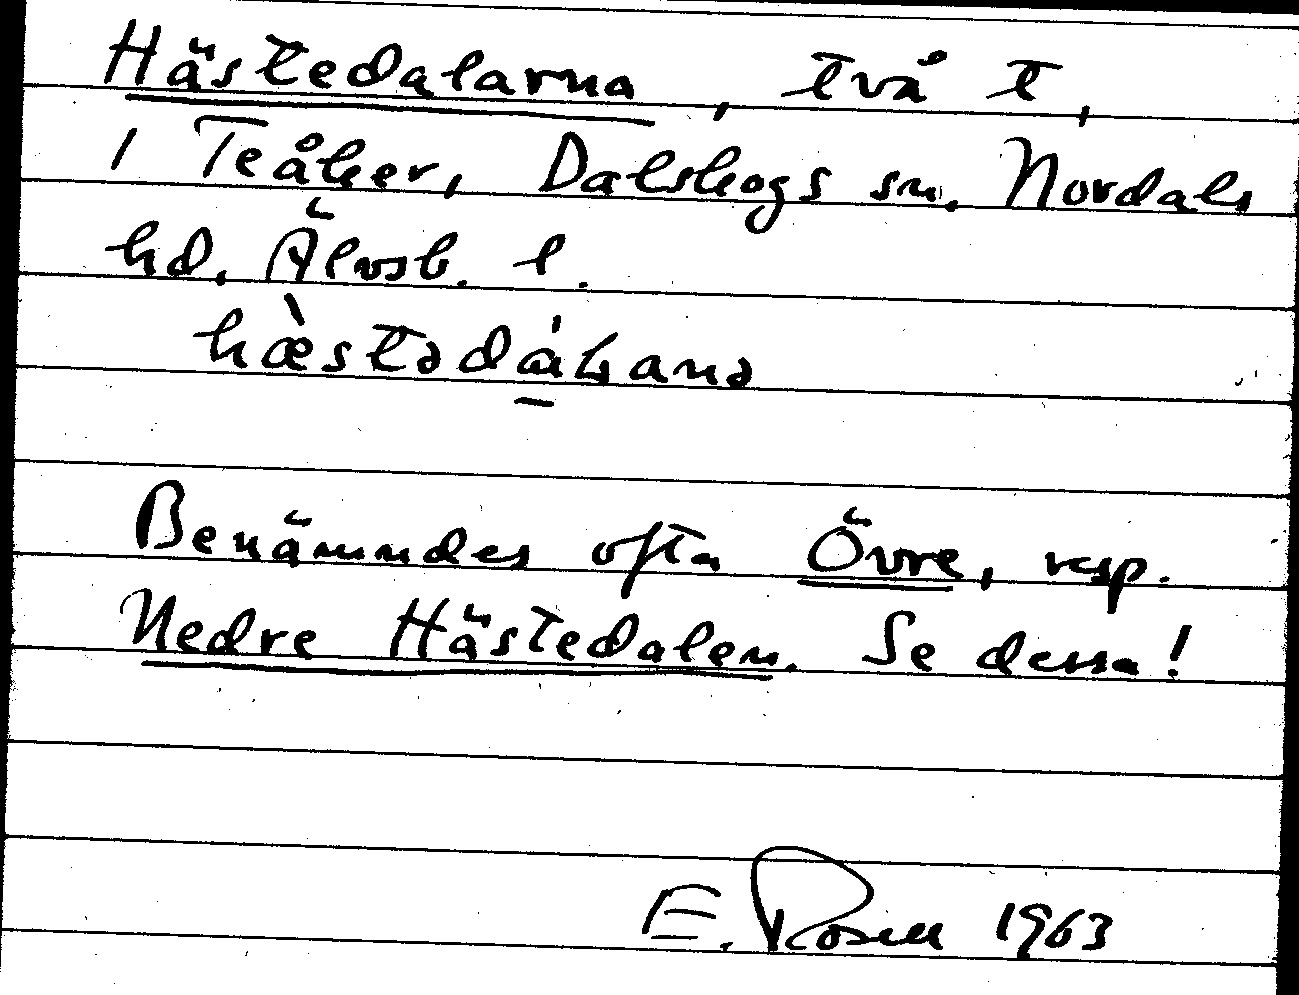 Hästedalarna, två t,
i Teåker, Dalskogs sn. Nordals
hd. Älvsb. l.
hæ̀stədáɫ̣anə
Benämndes ofta Övre, resp.
Nedre Hästedalen. Se dessa!
E. Rosell 1963